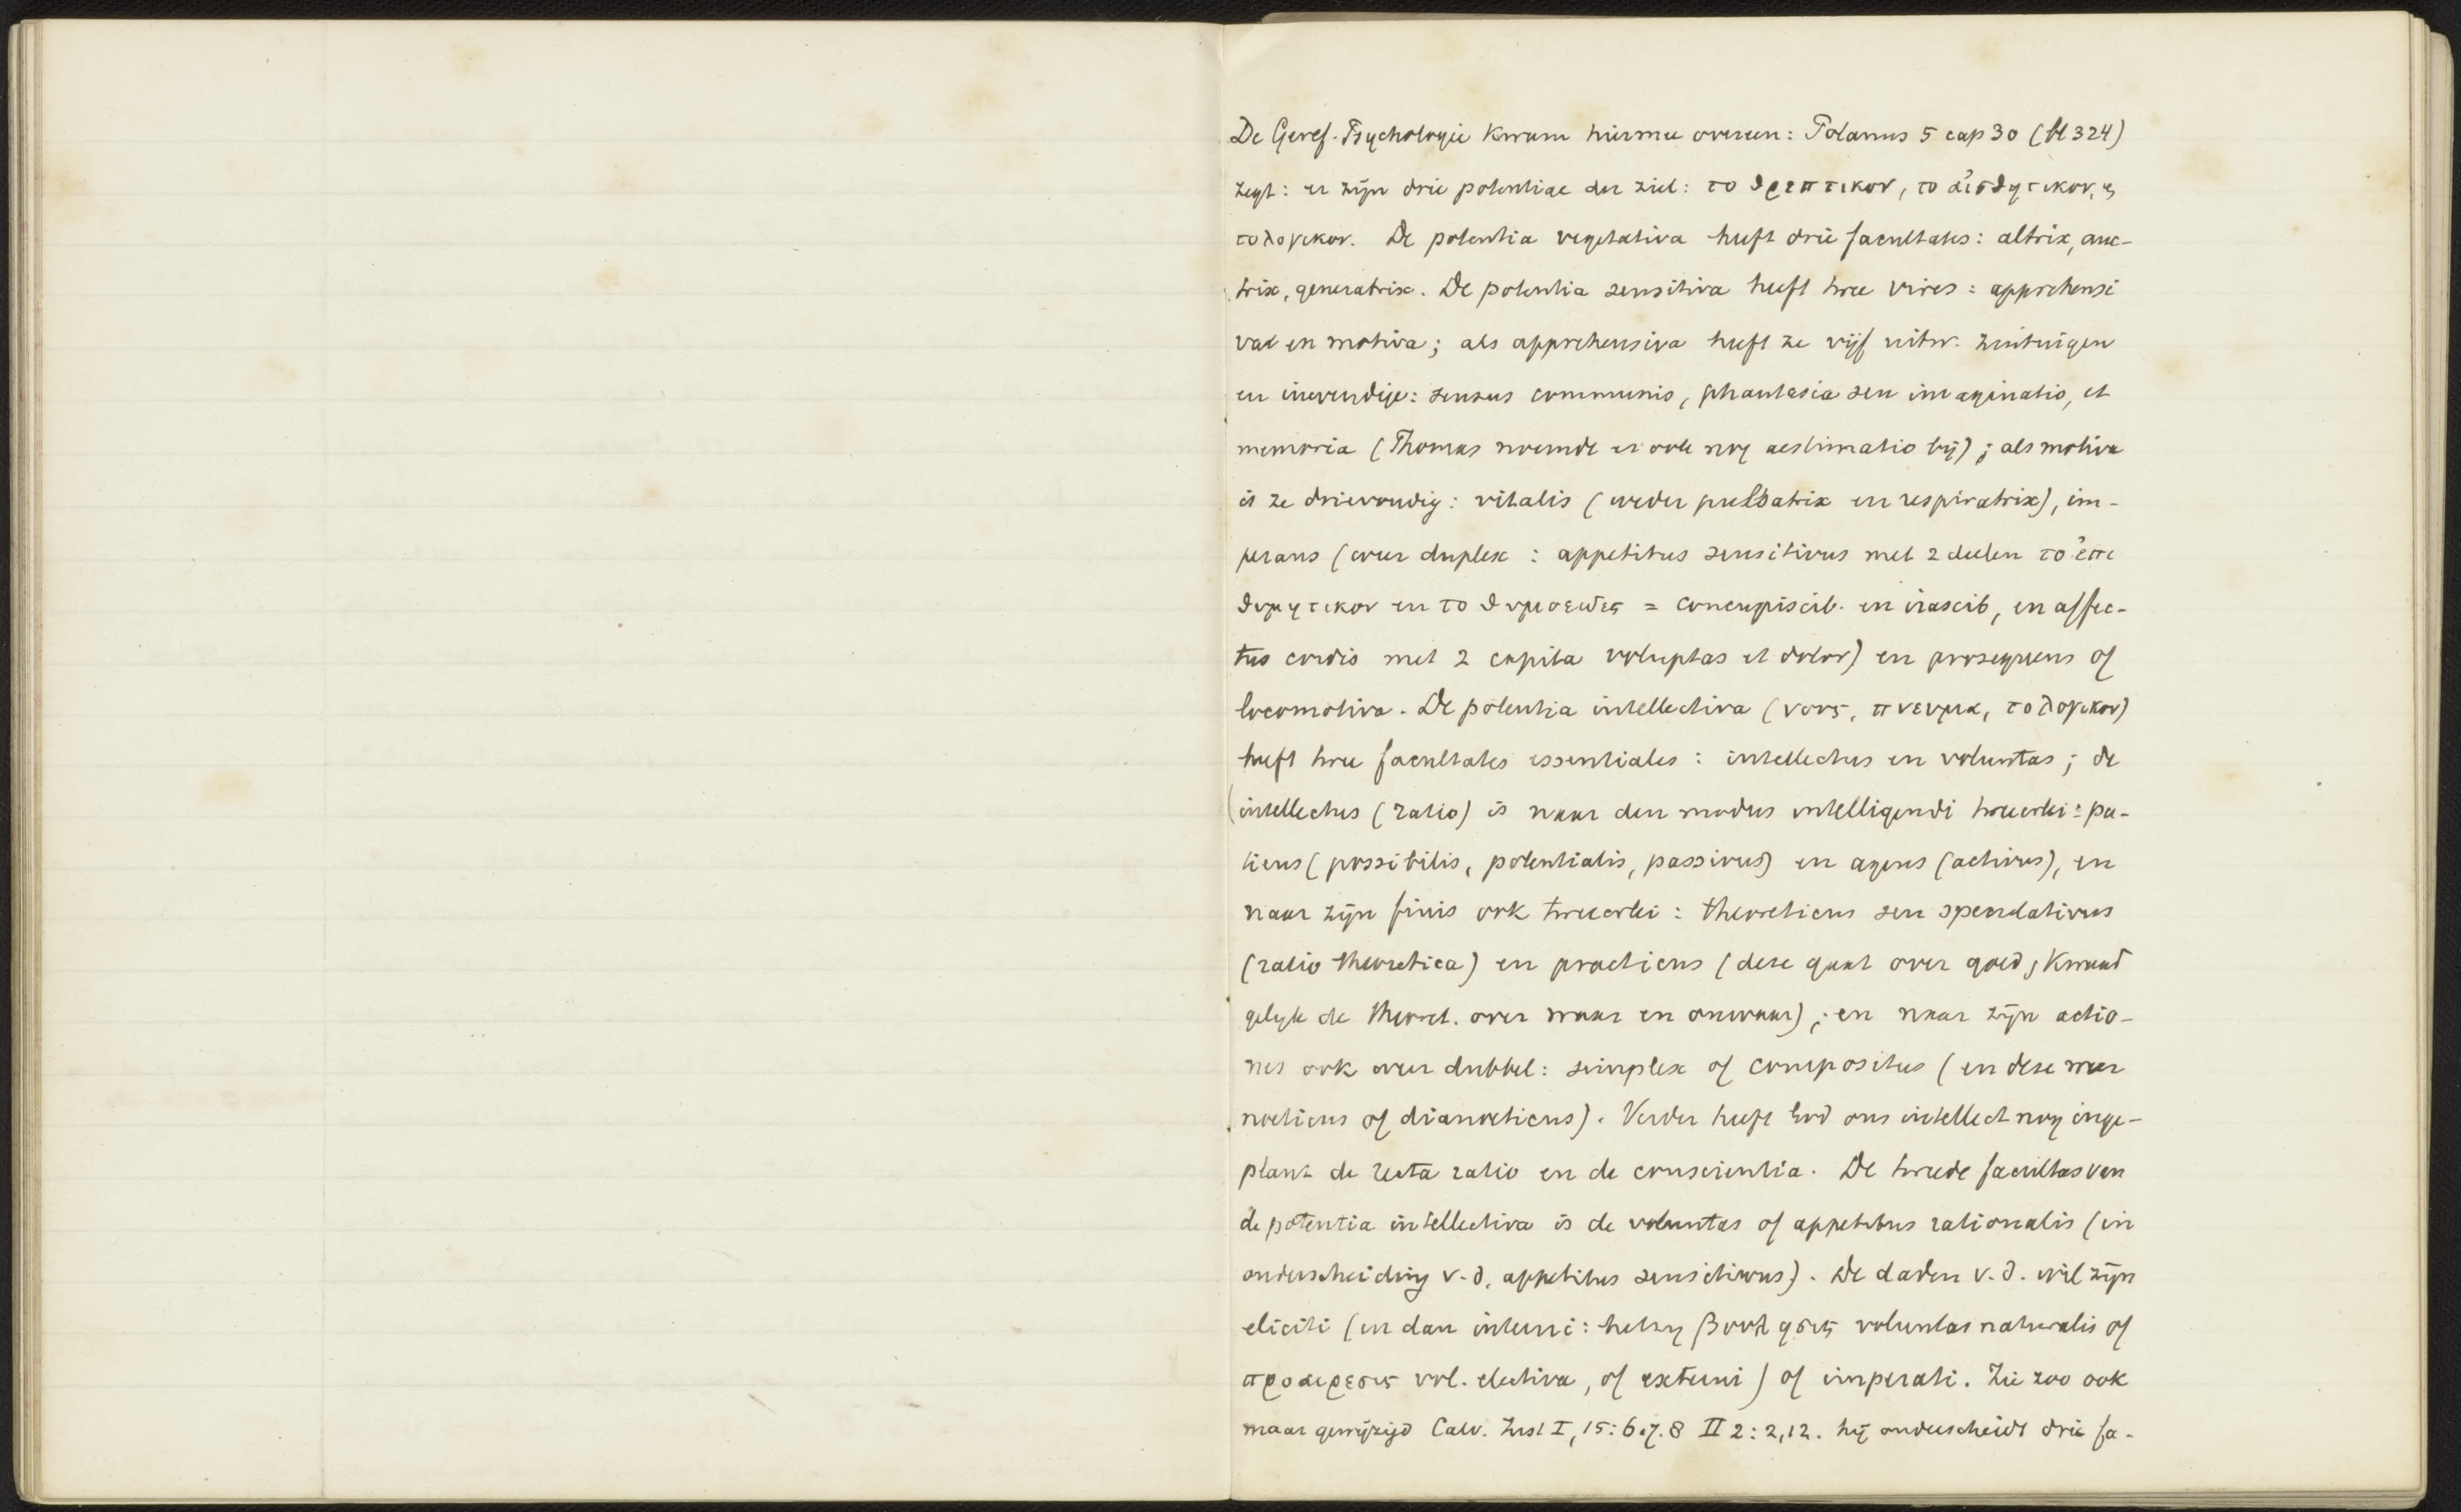 De Geref. Psychologie kwam hiermee overeen: Polanus 5 cap 30 (bl 324)
zegt: er zijn drie potentiae der ziel: το θρεπτικον, το αἰσθητικον, en
το λογικον. De potentia vegetativa heeft drie facultates: altrix, auc-
trix, generatrix. De potentia sensitiva heeft twee vires: apprehensi
vae en motiva; als apprehensiva heeft ze vijf uitw. zintuigen
en inwendige: sensus communis, phantasia seu imaginatio, et
memoria (Thomas noemde er ook nog aestimatio bij); als motiva
is ze drievoudig: vitalis (weder pulsatrix en respiratrix), im-
perans (weer duplex: appetitus sensitivus met 2 deelen το ἐπι
θυμητικον en το θυμοειδες = concupiscib. en irascib, en affec-
tus cordis met 2 capita voluptas et dolor) en prosequens of
locomotiva. De potentia intellectiva (νους, πνευμα, το λογικον)
heeft twee facultates essentiales: intellectus en voluntas; de
intellectus (ratio) is naar den modus intelligendi tweeerlei: pa-
tiens (possibilis, potentialis, passivus) en agens (activus), en
naar zijn finis ook tweeerlei: theoreticus seu speculativus
(ratio theoretica) en practicus (deze gaat over goed, kwaad
gelijk de theoret. over waar en onwaar); en naar zijn actio-
nes ook weer dubbel: simplex of compositus (en deze weer
noeticus of dianoeticus). Verder heeft God ons intellect nog inge-
plant de recta ratio en de conscientia. De tweede facultas van
de potentia intellectiva is de voluntas of appetitus rationalis (in
onderscheiding v. d. appetitus sensitivus). De daden v. d. wil zijn
eliciti (en dan interni: hetzij βουλησις voluntas naturalis of
προαιρεσις vol. electiva, of externi) of imperati. Zie zoo ook
maar gewijzigd Calv. Inst I, 15:6.7.8 II 2:2,12. hij onderscheidt drie fa-